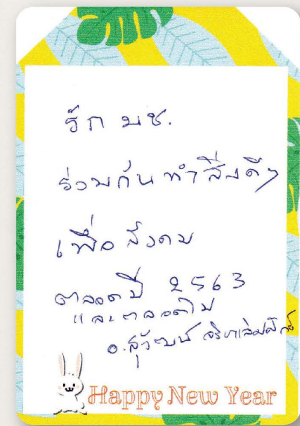 รัก มช.
ร่วมกันทำสิ่งดีๆ
เพื่อสังคม
ตลอดปี 2563
และตลอดไป
อ.สุวัฒน์
Happy New Year